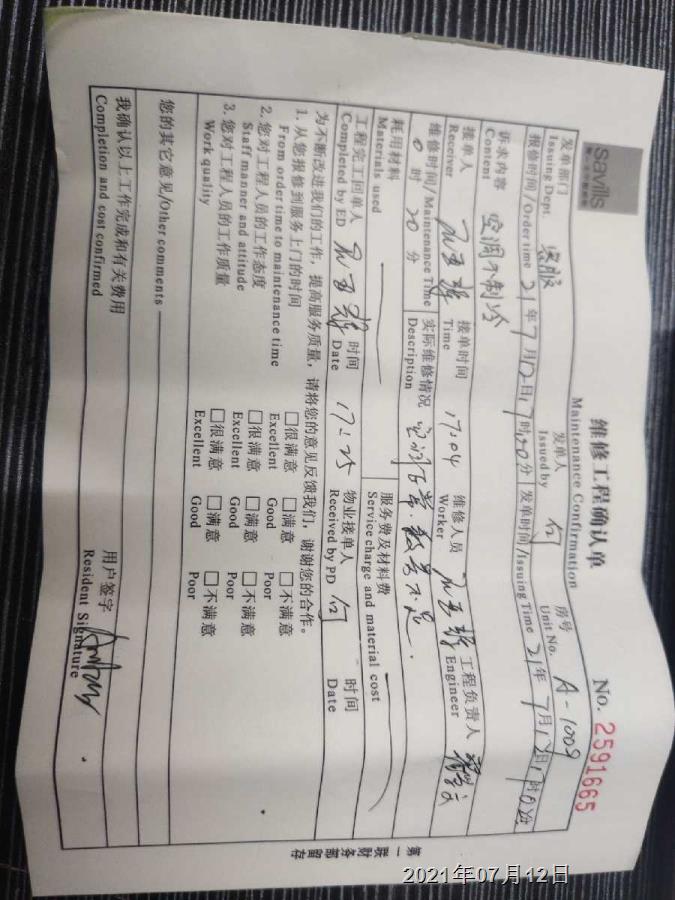 savills
维修工程确认单
Maintenance Confirmation
No. 2591665
发单部门 客服 发单人 房号 A-1009
Issuing Dept. Issued by Unit No.
报修时间/Order time 21年7月12日17时00分 发单时间/Issuing Time 21年7月12日17时02分
诉求内容 空调不制冷
Content
接单人 接单时间 17:04 维修人员 工程负责人
Receiver Time Worker Engineer
维修时间/Maintenance Time 实际维修情况
0时20分 Description
耗用材料 服务费及材料费
Materials used Service charge and material cost
工程完工回单人 时间 17:25 物业接单人 时间
Completed by ED Date Received by PD Date
为不断改进我们的工作，提高服务质量，请将您的意见反馈我们，谢谢您的合作。
1. 从您报修到服务上门的时间 □很满意 □满意 □不满意
From order time to maintenance time Excellent Good Poor
2. 您对工程人员的工作态度 □很满意 □满意 □不满意
Staff manner and attitude Excellent Good Poor
3. 您对工程人员的工作质量 □很满意 □满意 □不满意
Work quality Excellent Good Poor
您的其它意见/Other comments
我确认以上工作完成和有关费用 用户签字
Completion and cost confirmed Resident Signature
第一联财务部留存
2021年07月12日